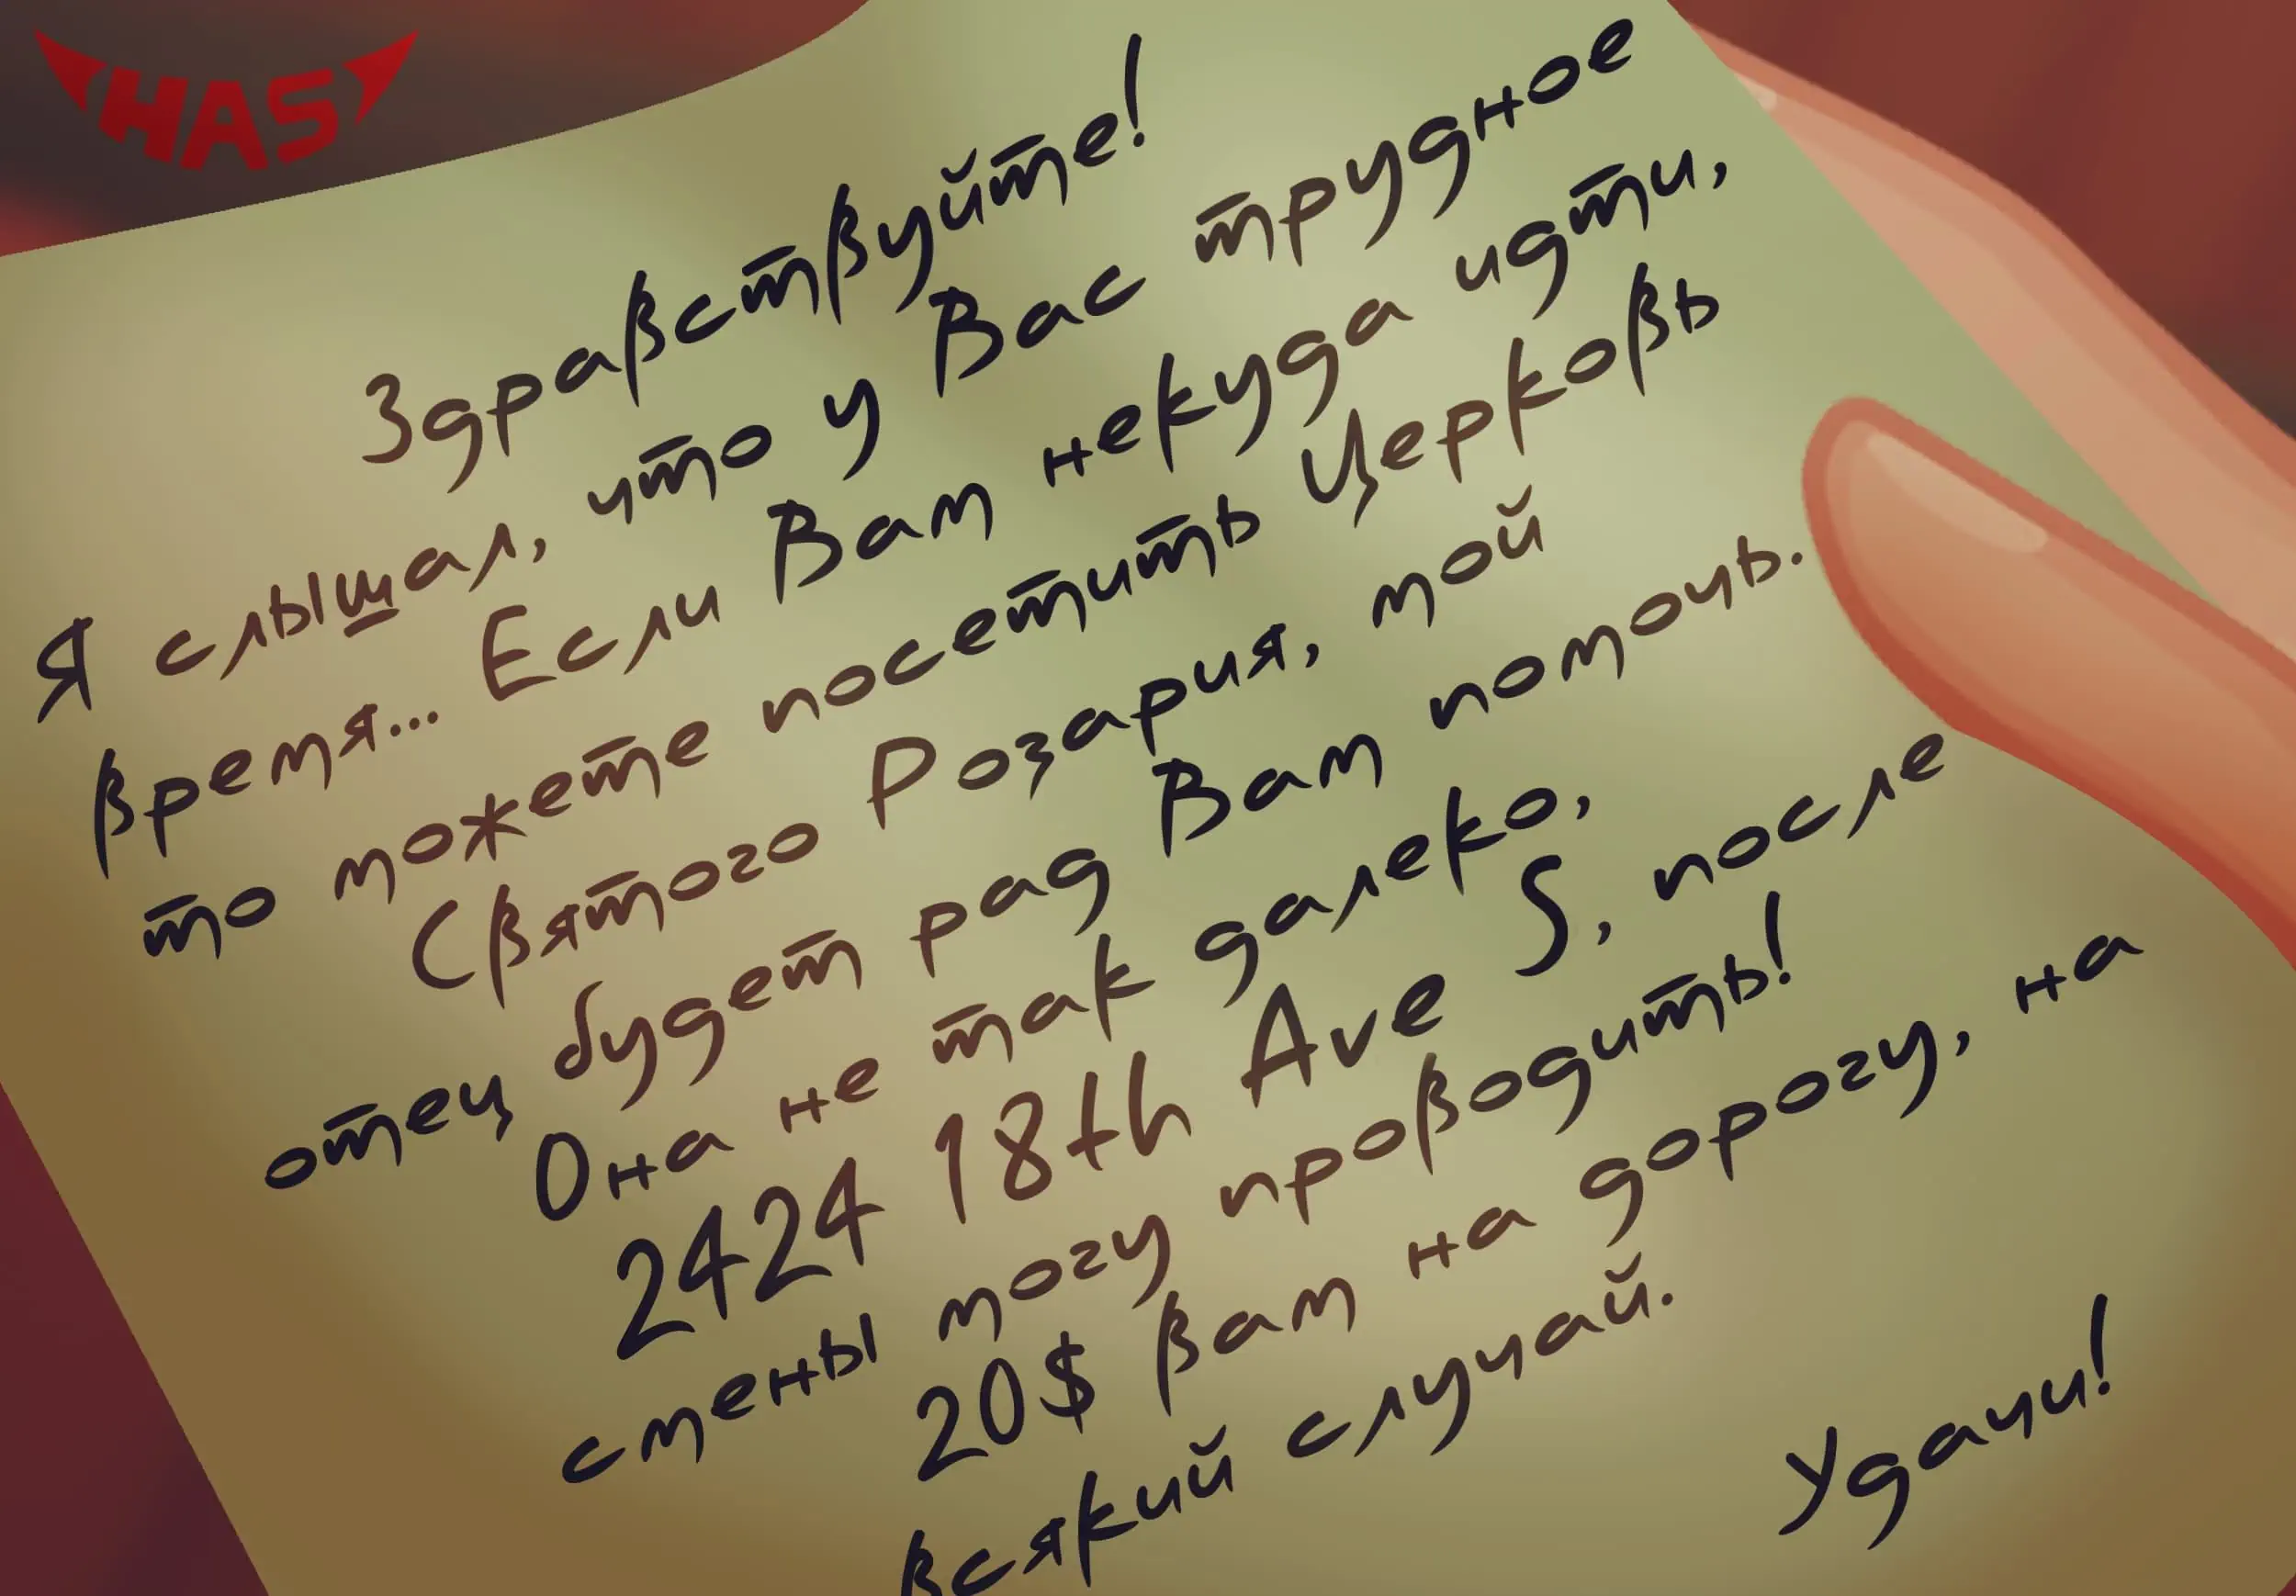 HAS
Здравствуйте!
Я слышал, что у Вас трудное
время... Если Вам некуда идти,
то можете посетить Церковь
Святого Розария, мой
отец будет рад Вам помочь.
Она не так далеко,
2424 18th Ave S, после
смены могу проводить!
20$ вам на дорогу, на
всякий случай.
Удачи!